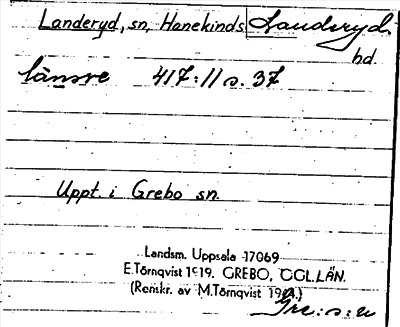 Landeryd, sn, Hanekinds Landeryd.
hd.
länsre 417:11 s. 37
Uppt. i Grebo sn.
Landsm. Uppsala 17069
E.Törnqvist 1919. GREBO, ÖGL.LÄN.
(Renskr. av M.Törnqvist 19